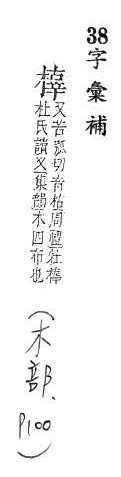 38字彙補
又苦瓠切音枯周禮牡
杜氏讀又集韻木四布也
(木部、P100)